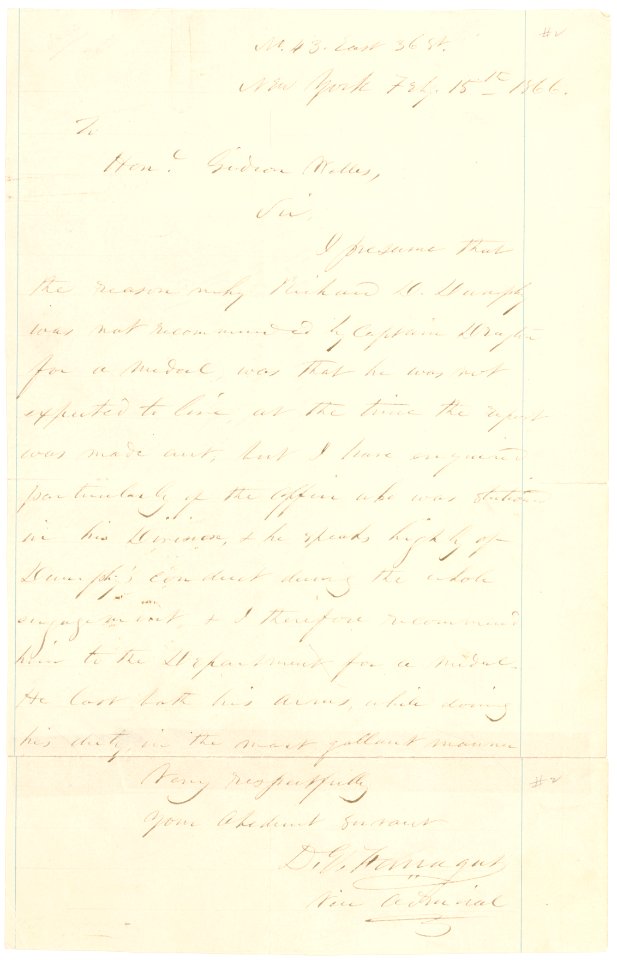 No. 43. East 36 St.
New York Feby. 15th 1866.
#2
To
Honl. Gideon Welles,
Sir.
I presume that
the reason why Richard D. Dunphy
was not recommended by Captain Drayton
for a medal, was that he was not
expected to live, at the time the report
was made out, but I have enquired
particularly of the officer who was station
in his Division, & he speaks highly of
Dunphy's conduct during the whole
engagement, & I therefore recommend
him to the Department for a medal.
He lost both his arms, while doing
his duty in the most gallant manner
Very respectfully
#2
Your Obedient Servant
D. G. Farragut
Vice Admiral